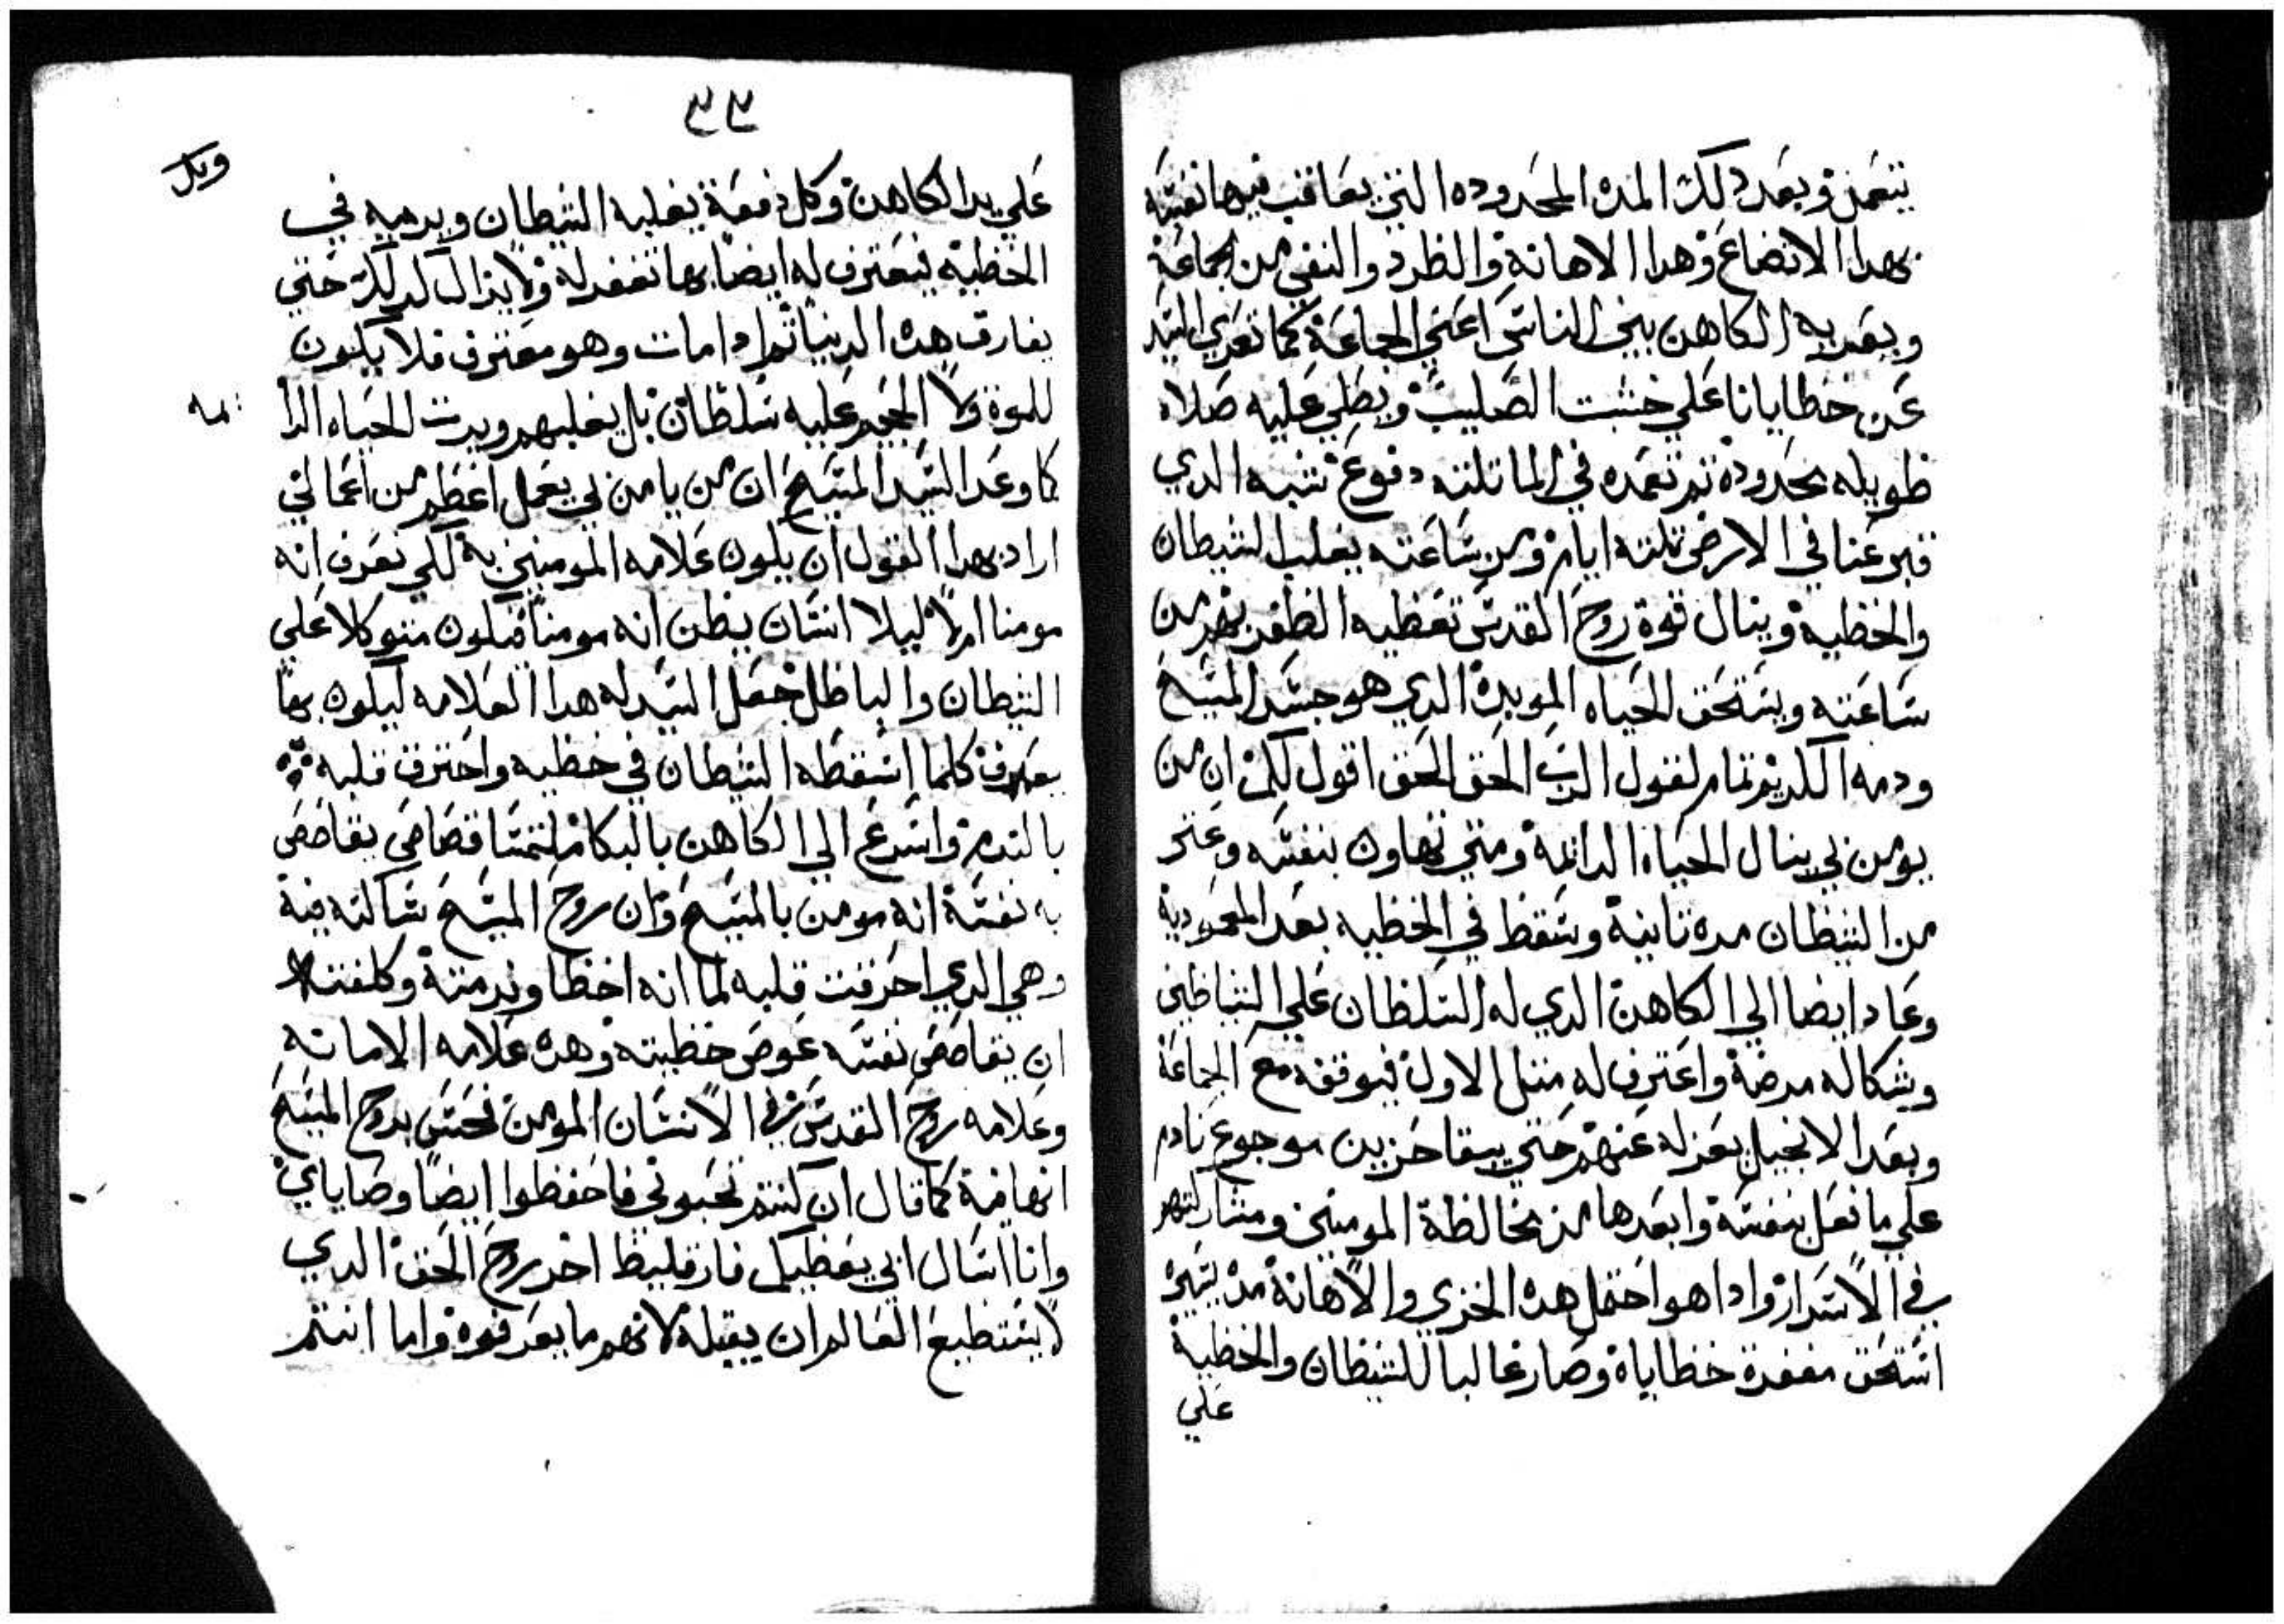 يتعمد وبعد دلك المده المحدوده التي يعاقب فيها نفسه
بهدا الاتضاع وهدا الاهانة والطرد والنفي من الجماعة
ويعريه الكاهن بين الناس اعني الجماعة كما تعري السيد
عن خطايانا علي خشبت الصليب ويصلي عليه صلاه
طويله محدودة تم تعمده في الما تلته دفوع شبه الدي
قبر عنا في الارض تلته ايام ومن ساعته يغلب الشيطان
والخطية وينال قوة روح القدس تعطيه الظفر بهم من
ساعته ويستحق الحياه الموبدة الدي هو جسد المسيح
ودمه الكريم تمام لقول الرب الحق الحق اقول لكم ان من
يومن بي ينال الحياه الدايمة ومتي تهاون بنفسه وعتر
من الشيطان مره تانية وسقط في الخطيه بعد المعمودية
وعاد ايضا الي الكاهن الدي له السلطان علي الشياطين
وشكا له مرضة واعترف له متل الاول فيوقفه مع الجماعة
وبعد الانجيل يعزله عنهم حتي يبقا حزين موجوع نادم
علي ما فعل بنفسه وابعدها من مخالطة المومنين ومشاركتهم
في الاسرار وادا هو احتمل هده الخزي والاهانة مده يسيره
استحق مغفرة خطاياة وصار غالبا للشيطان والخطية
علي
٣٣
علي يد الكاهن وكل دفعة يغلبه الشيطان ويرميه في
وبك
الخطية فيعترف له ايضا بها تغفر له ولا يزال كدلك حتي
يفارق هده الدنيا تم ادا مات وهو معترف فلا يكون
للموة ولا الجحيم عليه سلطان بل يغلبهم ويرت الحياه الدا
يمه
كا وعد السيد المسيح ان من يامن بي يعمل اعظم من اعمالي
اراد بهدا القول ان يكون علامه المومنين به لكي نعرف انه
مومنا ام لا ليلا انسان يظن انه مومنا فيكون متوكلا علي
الشيطان والباطل جعل السيد له هدا العلامه ليكون بها
يعرف كلما اسقطه الشيطان في خطيه واحترق قلبه
بالندم واسرع الي الكاهن بالبكا ملتمسا قصاص يقاصص
به نفسة انه مومن بالمسيح وان روح المسيح ساكنه فية
وهي الدي احرقت قلبه لما انه اخطا وندمتة وكلفته
ان يقاصص نفسه عوض خطيته وهده علامه الامانه
وعلامه روح القدس في الانسان المومن نحس بروح المسيح
انها فية كما قال ان كنتم تحبوني فاحفظوا ايضا وصاياي
وانا اسال ابي يعطيكم فارقليط اخر روح الحق الدي
لا يستطيع العالم ان يقبلة لانهم ما يعرفوه واما انتم